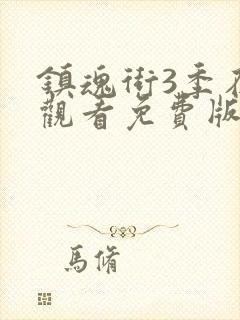 鎮魂街3季在
觀看免費版
馬脩